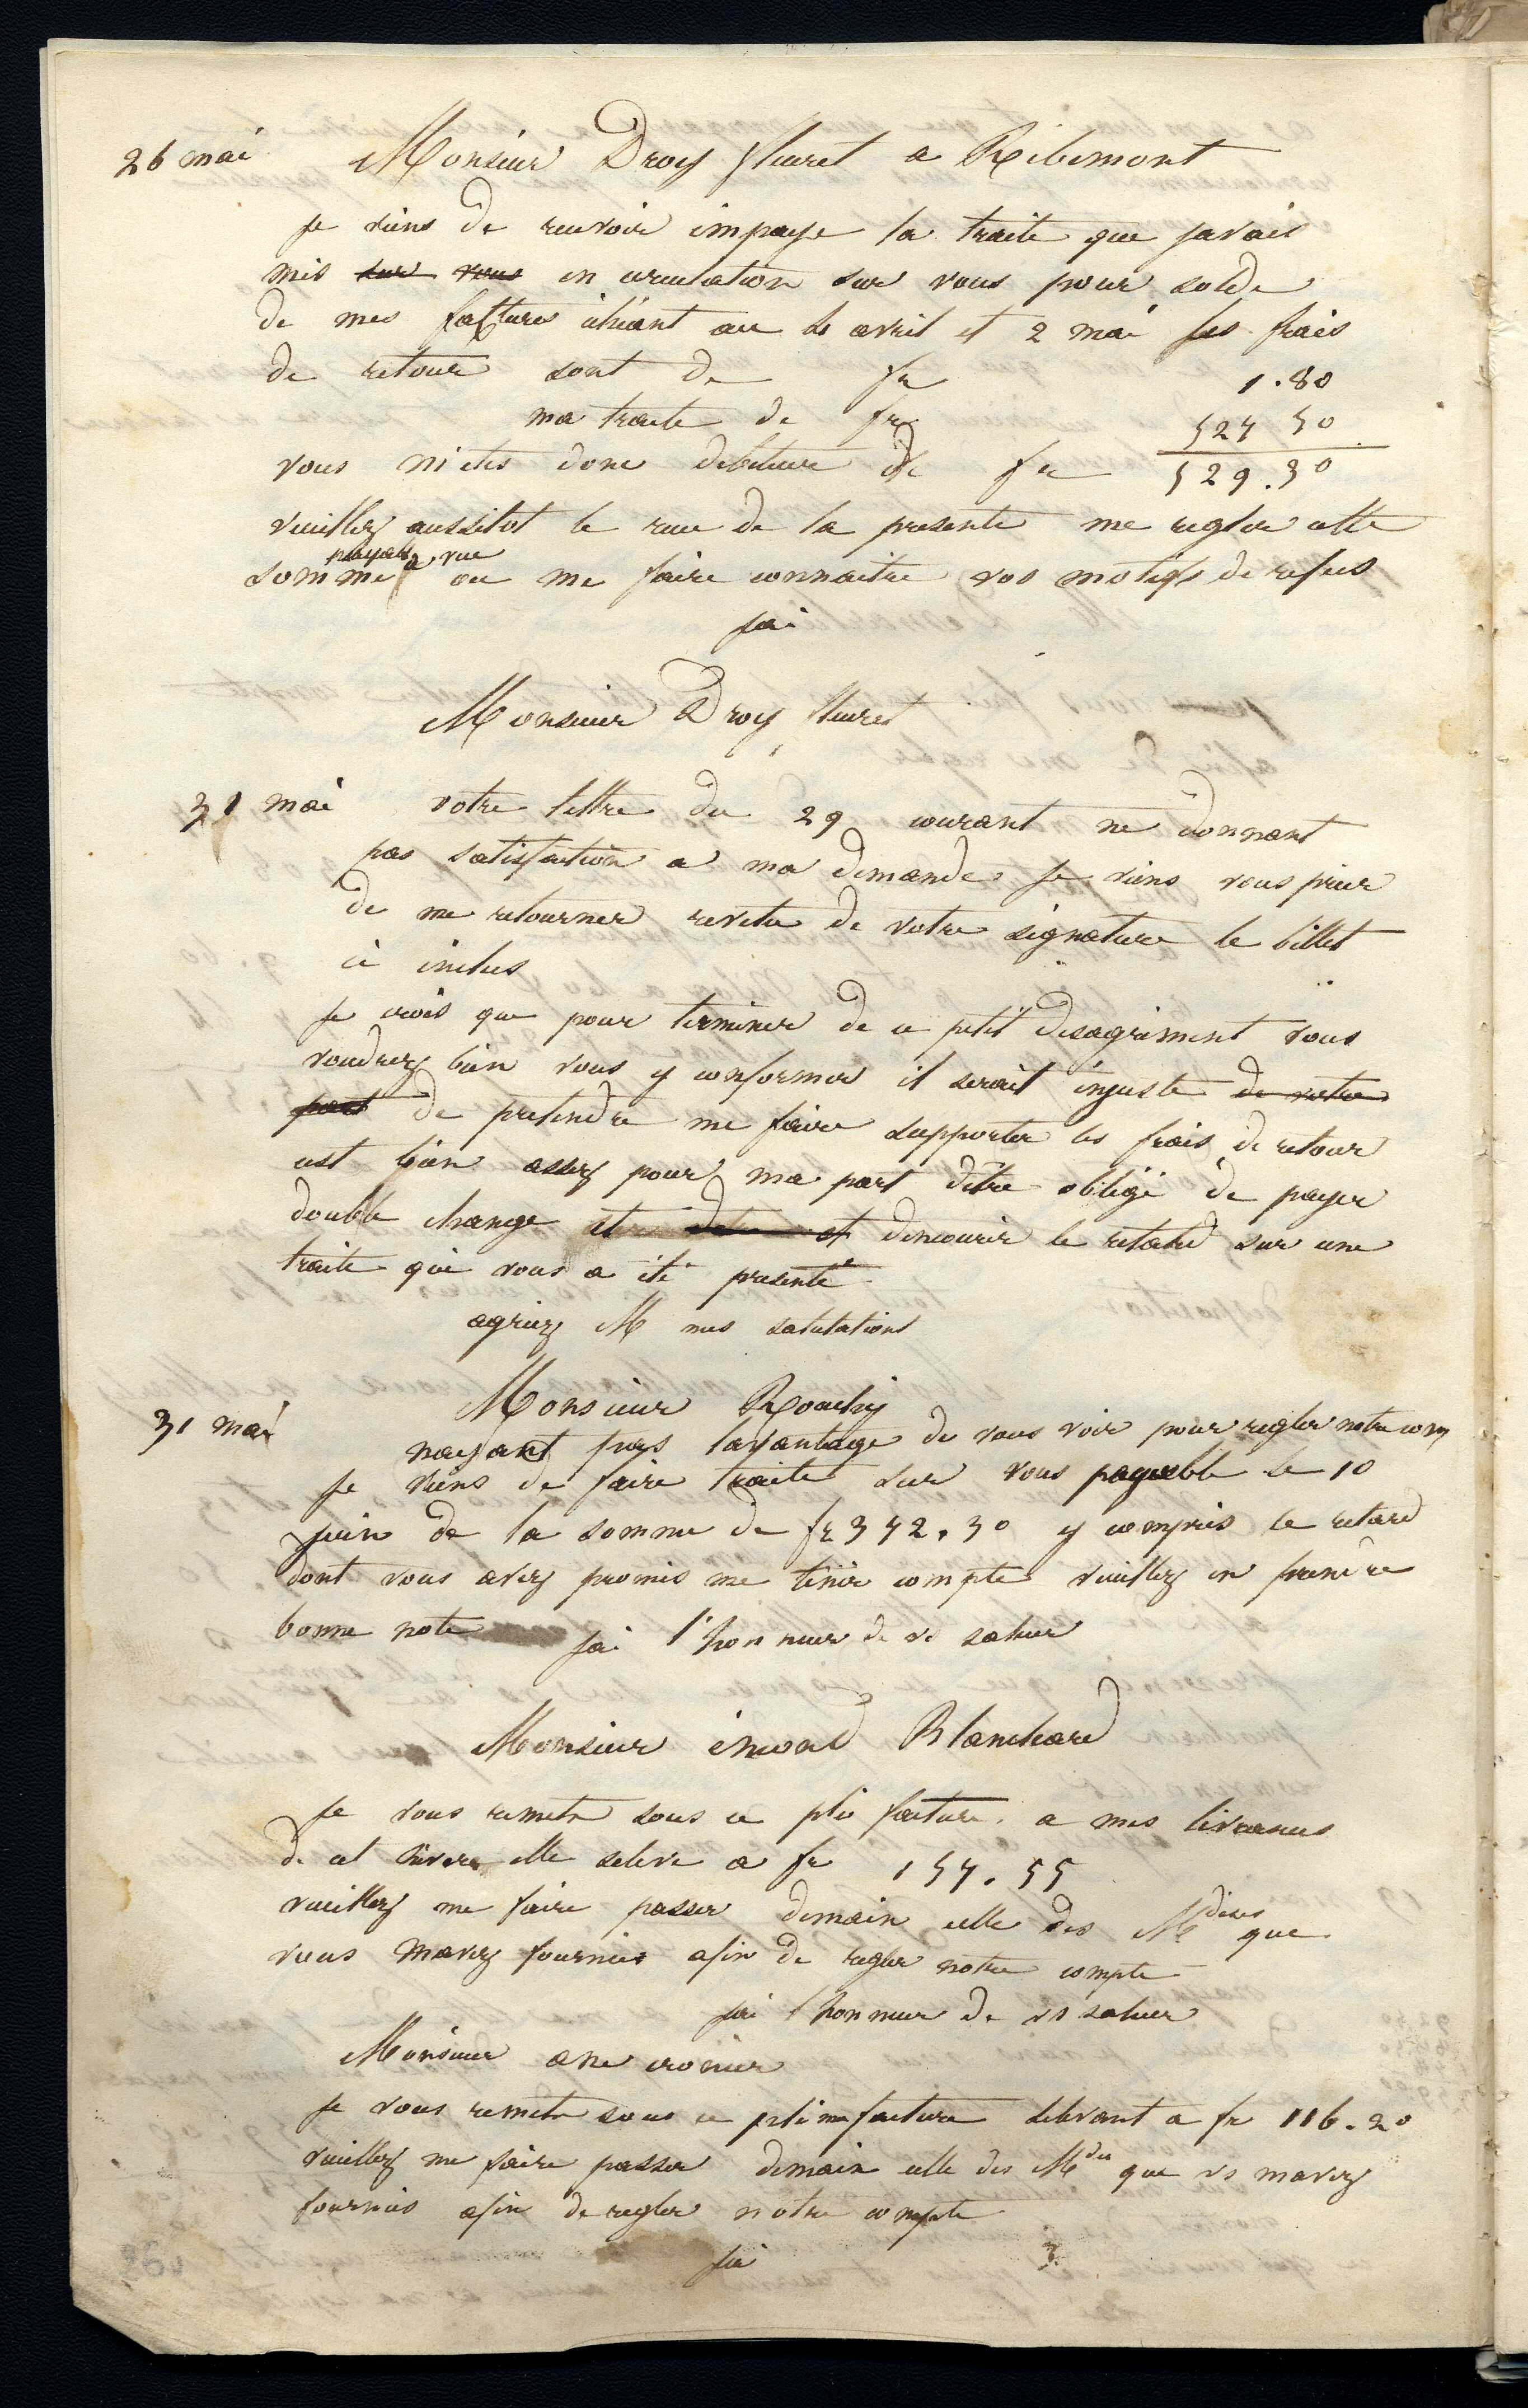 26 mai Monsieur Droy fleuret a Ribemont
je viens de recevoir impaye la traite que javais
mis sur vous en circulation sur vous pour solde
de mes factures échéant au avril et 2 mai les frais
de retour sont de fr 1.80
ma traite de fr 527 50
vous m etes donc debiteur de fr 529.30
veuillez aussitot le recu de la presente me regler cette
somme payab a vue ou me faire connaitre vos motifs de refus
jai
Monsieur Droy fleuret
31 mai votre lettre du 29 courant ne donnant
pas satisfaction a ma demande je viens vous prier
de me retourner revetu de votre signature le billet
ci inclus
je crois que pour terminer de ce petit desagriment vous
voudrez bien vous y conformer il serait injuste de votre
part de pretendre me faire supporter les frais de retour
cest bien assez pour ma part detre obligé de payer
double change et et dencourir le retard sur une
traite qui vous a été presenté
agriez M mes salutations
Monsieur
31 mai nayant pas lavantage de vous voir pour regler notre com
je viens de faire traite sur vous payable le 10
juin de la somme de fr 372.30 y compris le retard
dont vous avez promis me tenir compte veuillez en prendre
bonne note jai l'honneur de vs saluer
Monsieur Blanchard
je vous remets sous ce pli facture a mes livraisons
de cet hiver elle seleve a fr 157.55
veuillez me faire passer demain celle des Mdises que
vous mavez fournies afin de regler notre compte
jai lhonneur de vs saluer
Monsieur cronier
je vous remets sous ce pli ma facture selevant a fr 116.20
veuillez me faire passer demain celle des Mdes que vs mavez
fournies afin de regler notre compte
jai